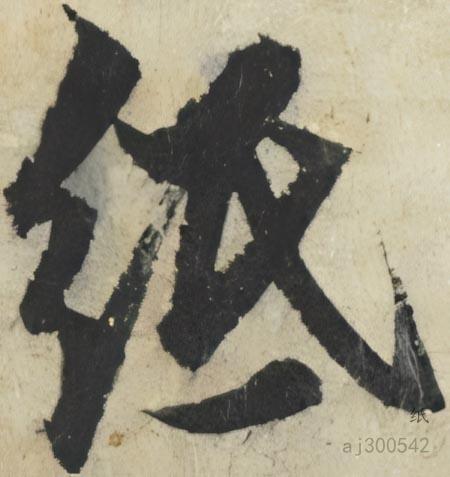 纸
纸
aj300542